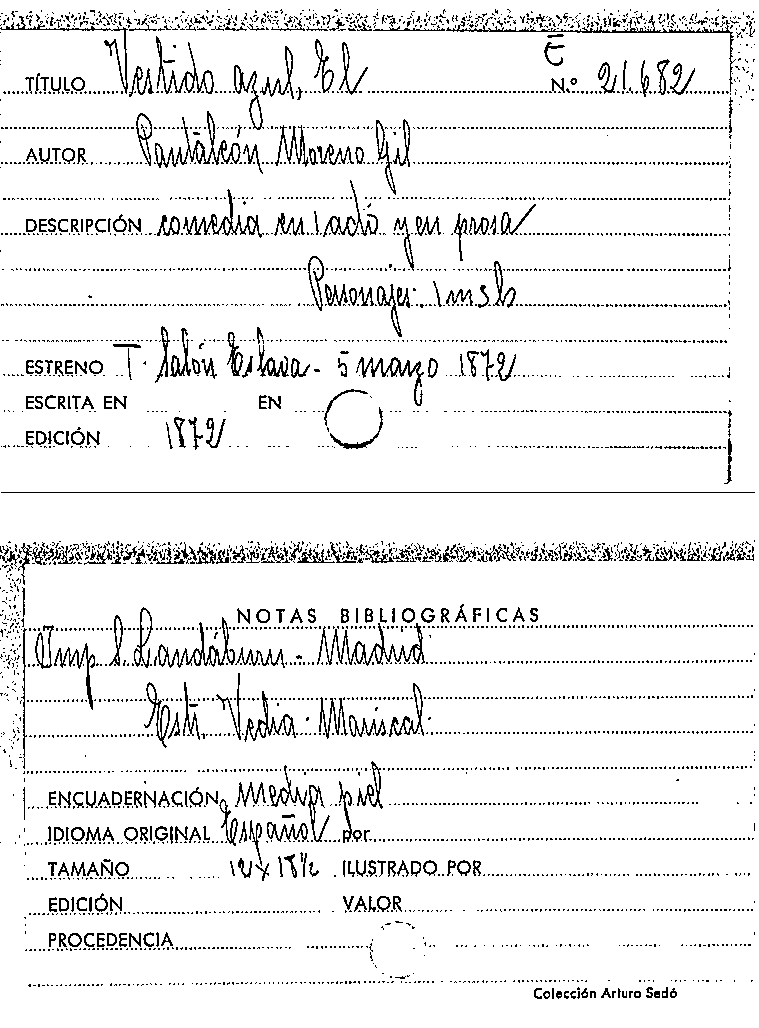 E
TÍTULO Vestido azul, El N.º 21.682
AUTOR Pantaleón Moreno Gil
DESCRIPCIÓN comedia en 1 acto y en prosa
Personajes: 1 m 3 h
ESTRENO T. Salón Eslava - 5 marzo 1872
ESCRITA EN EN
EDICIÓN 1872
NOTAS BIBLIOGRÁFICAS
Imp S. Landáburu - Madrid
Estr. Vedia - Mariscal.
ENCUADERNACIÓN media piel
IDIOMA ORIGINAL Español por
TAMAÑO 12 x 18½ ILUSTRADO POR
EDICIÓN VALOR
PROCEDENCIA
Colección Arturo Sedó